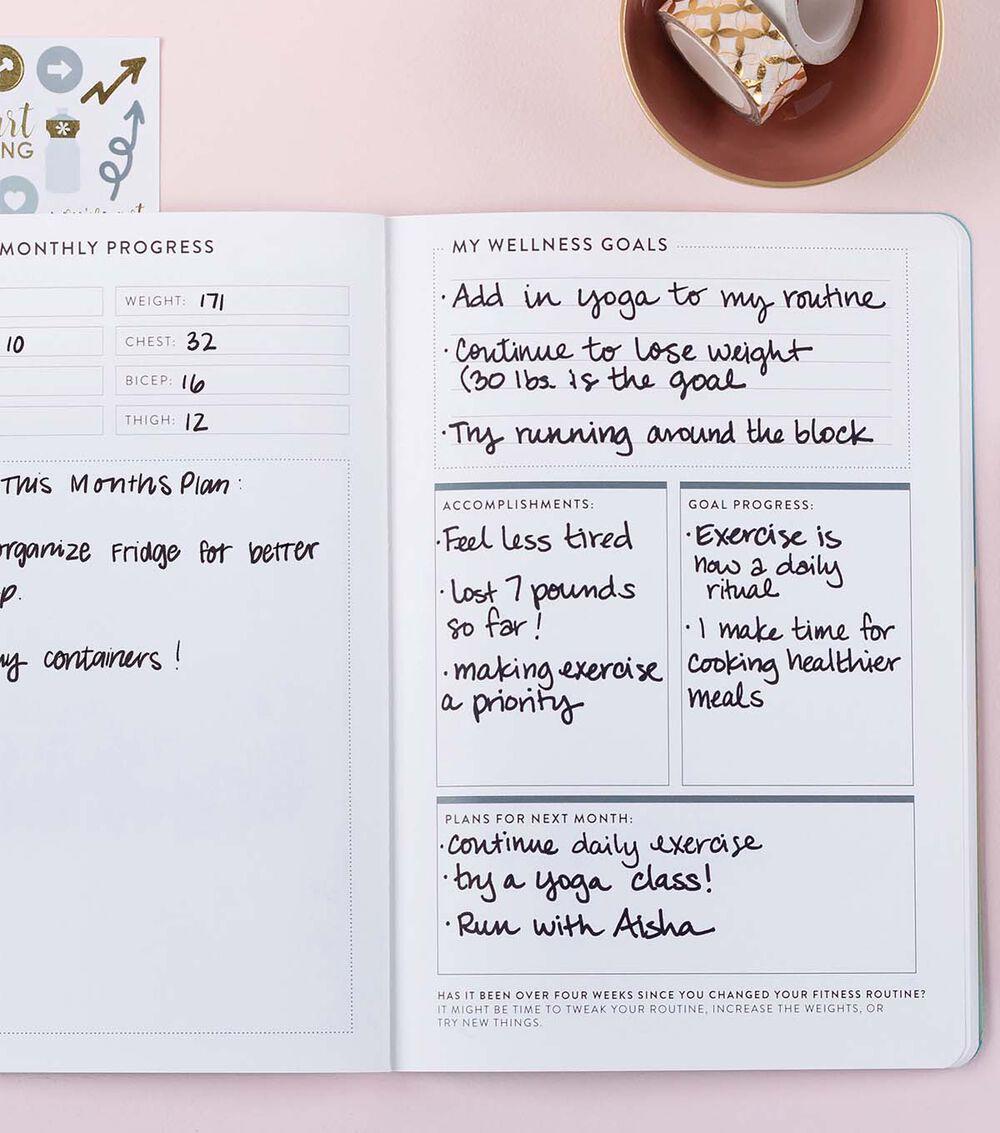 MONTHLY PROGRESS
WEIGHT: 171
10
CHEST: 32
BICEP: 16
THIGH: 12
This Months Plan:
organize Fridge for better
containers!
MY WELLNESS GOALS
·Add in yoga to my routine
·Continue to lose weight
(30 lbs. is the goal
·Try running around the block
ACCOMPLISHMENTS:
·Feel less tired
·Lost 7 pounds
so far!
·making exercise
a priority
GOAL PROGRESS:
·Exercise is
now a daily
ritual
·I make time for
cooking healthier
meals
PLANS FOR NEXT MONTH:
·continue daily exercise
·try a yoga class!
·Run with Aisha
HAS IT BEEN OVER FOUR WEEKS SINCE YOU CHANGED YOUR FITNESS ROUTINE?
IT MIGHT BE TIME TO TWEAK YOUR ROUTINE, INCREASE THE WEIGHTS, OR
TRY NEW THINGS.